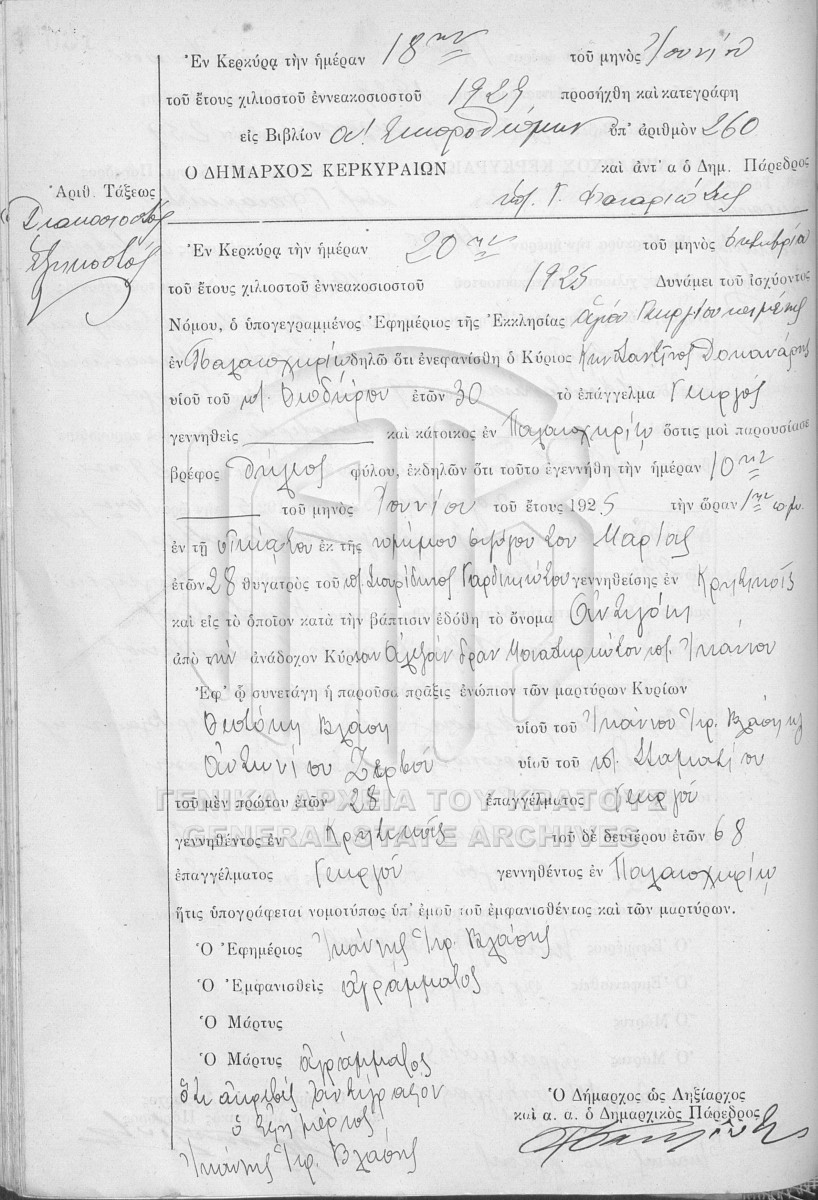 Ἐν Κερκύρᾳ τὴν ἡμέραν 18ην τοῦ μηνὸς Ἰουνίου
τοῦ ἔτους χιλιοστοῦ ἐννεακοσιοστοῦ 1929 προσήχθη καὶ κατεγράφη
εἰς Βιβλίον ὑπ' ἀριθμὸν 260
Ὁ ΔΗΜΑΡΧΟΣ ΚΕΡΚΥΡΑΙΩΝ καὶ ἀντ' α ὁ Δημ. Πάρεδρος
Ἀριθ. Τάξεως
Διακοσιοστὸς
Ἑξηκοστὸς
Ἐν Κερκύρᾳ τὴν ἡμέραν 20ην τοῦ μηνὸς ὀκτωβρίου
τοῦ ἔτους χιλιοστοῦ ἐννεακοσιοστοῦ 1925 Δυνάμει τοῦ ἰσχύοντος
Νόμου, ὁ ὑπογεγραμμένος Ἐφημέριος τῆς Ἐκκλησίας ἁγίου Γεωργίου
ἐν Παλαιοχωρίῳ δηλῶ ὅτι ἐνεφανίσθη ὁ Κύριος Κωνσταντῖνος Δουκανάρης
υἱοῦ τοῦ ποτ. Θεοδώρου ἐτῶν 30 τὸ ἐπάγγελμα Γεωργὸς
γεννηθεὶς καὶ κάτοικος ἐν Παλαιοχωρίῳ ὅστις μοὶ παρουσίασε
βρέφος θήλεος φύλου, ἐκδηλῶν ὅτι τοῦτο ἐγεννήθη τὴν ἡμέραν 10ην
τοῦ μηνὸς Ἰουνίου τοῦ ἔτους 1925 τὴν ὥραν 1ην πμ.
ἐν τῇ οἰκίᾳ του ἐκ τῆς νομίμου συζύγου του Μαρίας
ἐτῶν 28 θυγατρὸς τοῦ ποτ. Σπυρίδωνος Γαρδικιώτου γεννηθείσης ἐν Κρητικοῖς
καὶ εἰς τὸ ὁποῖον κατὰ τὴν βάπτισιν ἐδόθη τὸ ὄνομα Ἀντιγόνη
ἀπὸ τὴν ἀνάδοχον Κύριον Ἀλεξάνδραν Μοναστηριώτου ποτ. Ἰωάννου
Ἐφ' ᾧ συνετάγη ἡ παροῦσα πρᾶξις ἐνώπιον τῶν μαρτύρων Κυρίων
Θεοτόκη Βλάση υἱοῦ τοῦ Ἰωάννου Ἱερ. Βλάσης
Ἀντωνίου Ζερβοῦ υἱοῦ τοῦ ποτ. Σταματίου
τοῦ μὲν πρώτου ἐτῶν 28 ἐπαγγέλματος Γεωργοῦ
γεννηθέντος ἐν Κρητικοῖς τοῦ δὲ δευτέρου ἐτῶν 68
ἐπαγγέλματος Γεωργοῦ γεννηθέντος ἐν Παλαιοχωρίῳ
ἥτις ὑπογράφεται νομοτύπως ὑπ' ἐμοῦ τοῦ ἐμφανισθέντος καὶ τῶν μαρτύρων.
Ὁ Ἐφημέριος Ἰωάννης Ἱερ. Βλάσης
Ὁ Ἐμφανισθεὶς ἀγράμματος
Ὁ Μάρτυς
Ὁ Μάρτυς ἀγράμματος
Ὅτι ἀκριβὲς ἀντίγραφον
ὁ Ἐφημέριος
Ἰωάννης Ἱερ. Βλάσης
Ὁ Δήμαρχος ὡς Ληξίαρχος
καὶ α. α. ὁ Δημαρχικὸς Πάρεδρος
ΓΕΝΙΚΑ ΑΡΧΕΙΑ ΤΟΥ ΚΡΑΤΟΥΣ
GENERAL STATE ARCHIVES